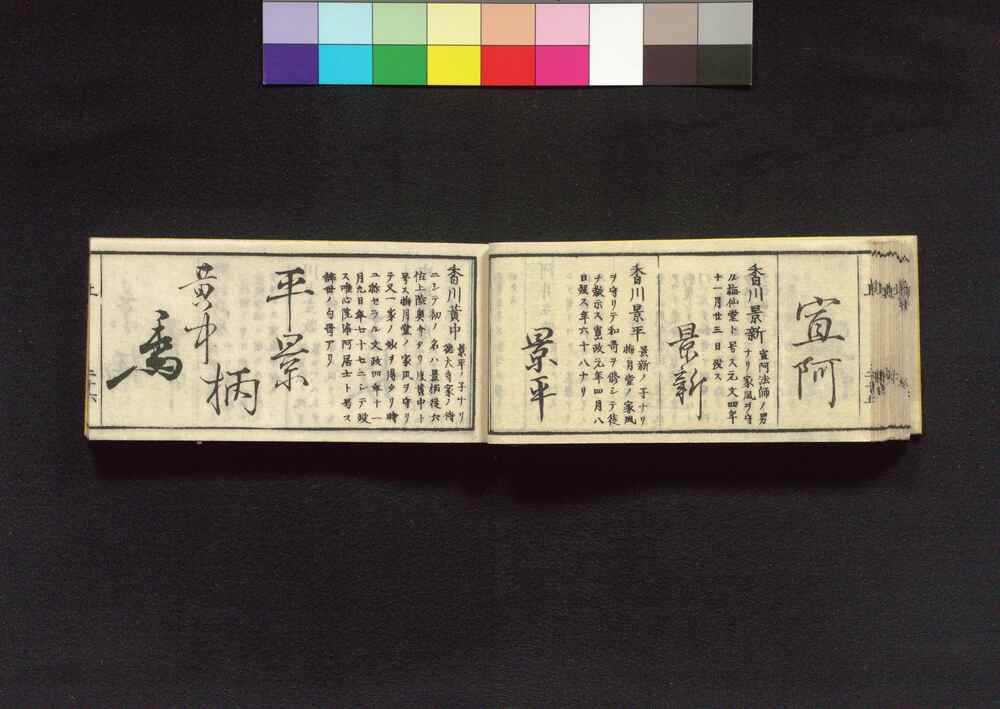 宣阿
香川景新
宣阿法師ノ男
ナリ家風ヲ守
ル梅仙堂ト号ス元文四年
十一月廿三日歿ス
景新
香川景平
景新ノ子ナリ
梅月堂ノ家風
ヲ守リテ和哥ヲ修シテ後
チ教示ス寛政元年四月八
日歿ス年六十八ナリ
景平
香川黄中
景平ノ子ナリ
徳大寺家ノ侍
ニシテ初ノ名ハ景柄後六
位上陸奥介タリ後黄中ト
号ス梅月堂ノ家風ヲ守リ
テ又一家ノ
月九日年七十七ニシテ歿
ス唯心院浄阿居士ト号ス
辞世ノ句哥アリ
平景
柄
黄中
上